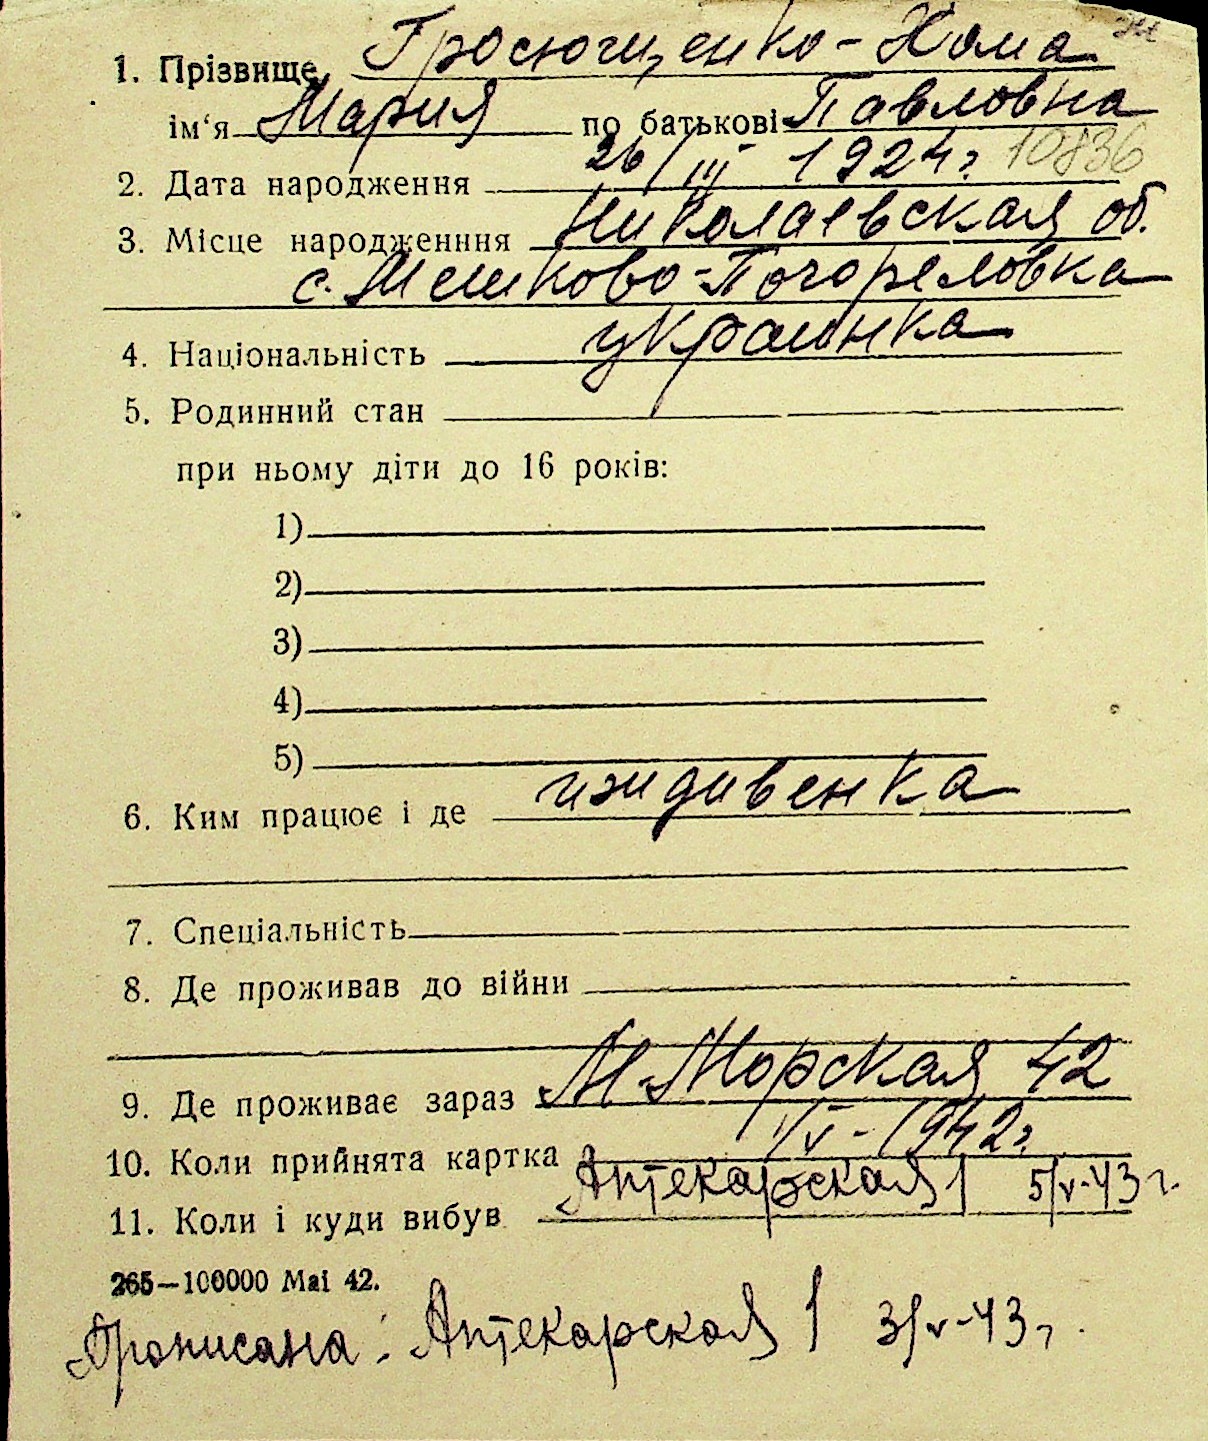 1. Прізвище Гросющенко-Хома
ім'я Мария по батькові Павловна
2. Дата народження 26/III 1924 г. 10836
3. Місце народженння Николаевская об.
с. Мешково-Погореловка
4. Національність украинка
5. Родинний стан
при ньому діти до 16 років:
1)
2)
3)
4)
5)
6. Ким працює і де иждивенка
7. Спеціальність
8. Де проживав до війни
9. Де проживає зараз М-Морская 42
10. Коли прийнята картка 1/V-1942 г.
11. Коли і куди вибув Аптекарская 1 5/V-43 г.
265—100000 Mai 42.
Прописана: Аптекарская 1 3/V-43 г.